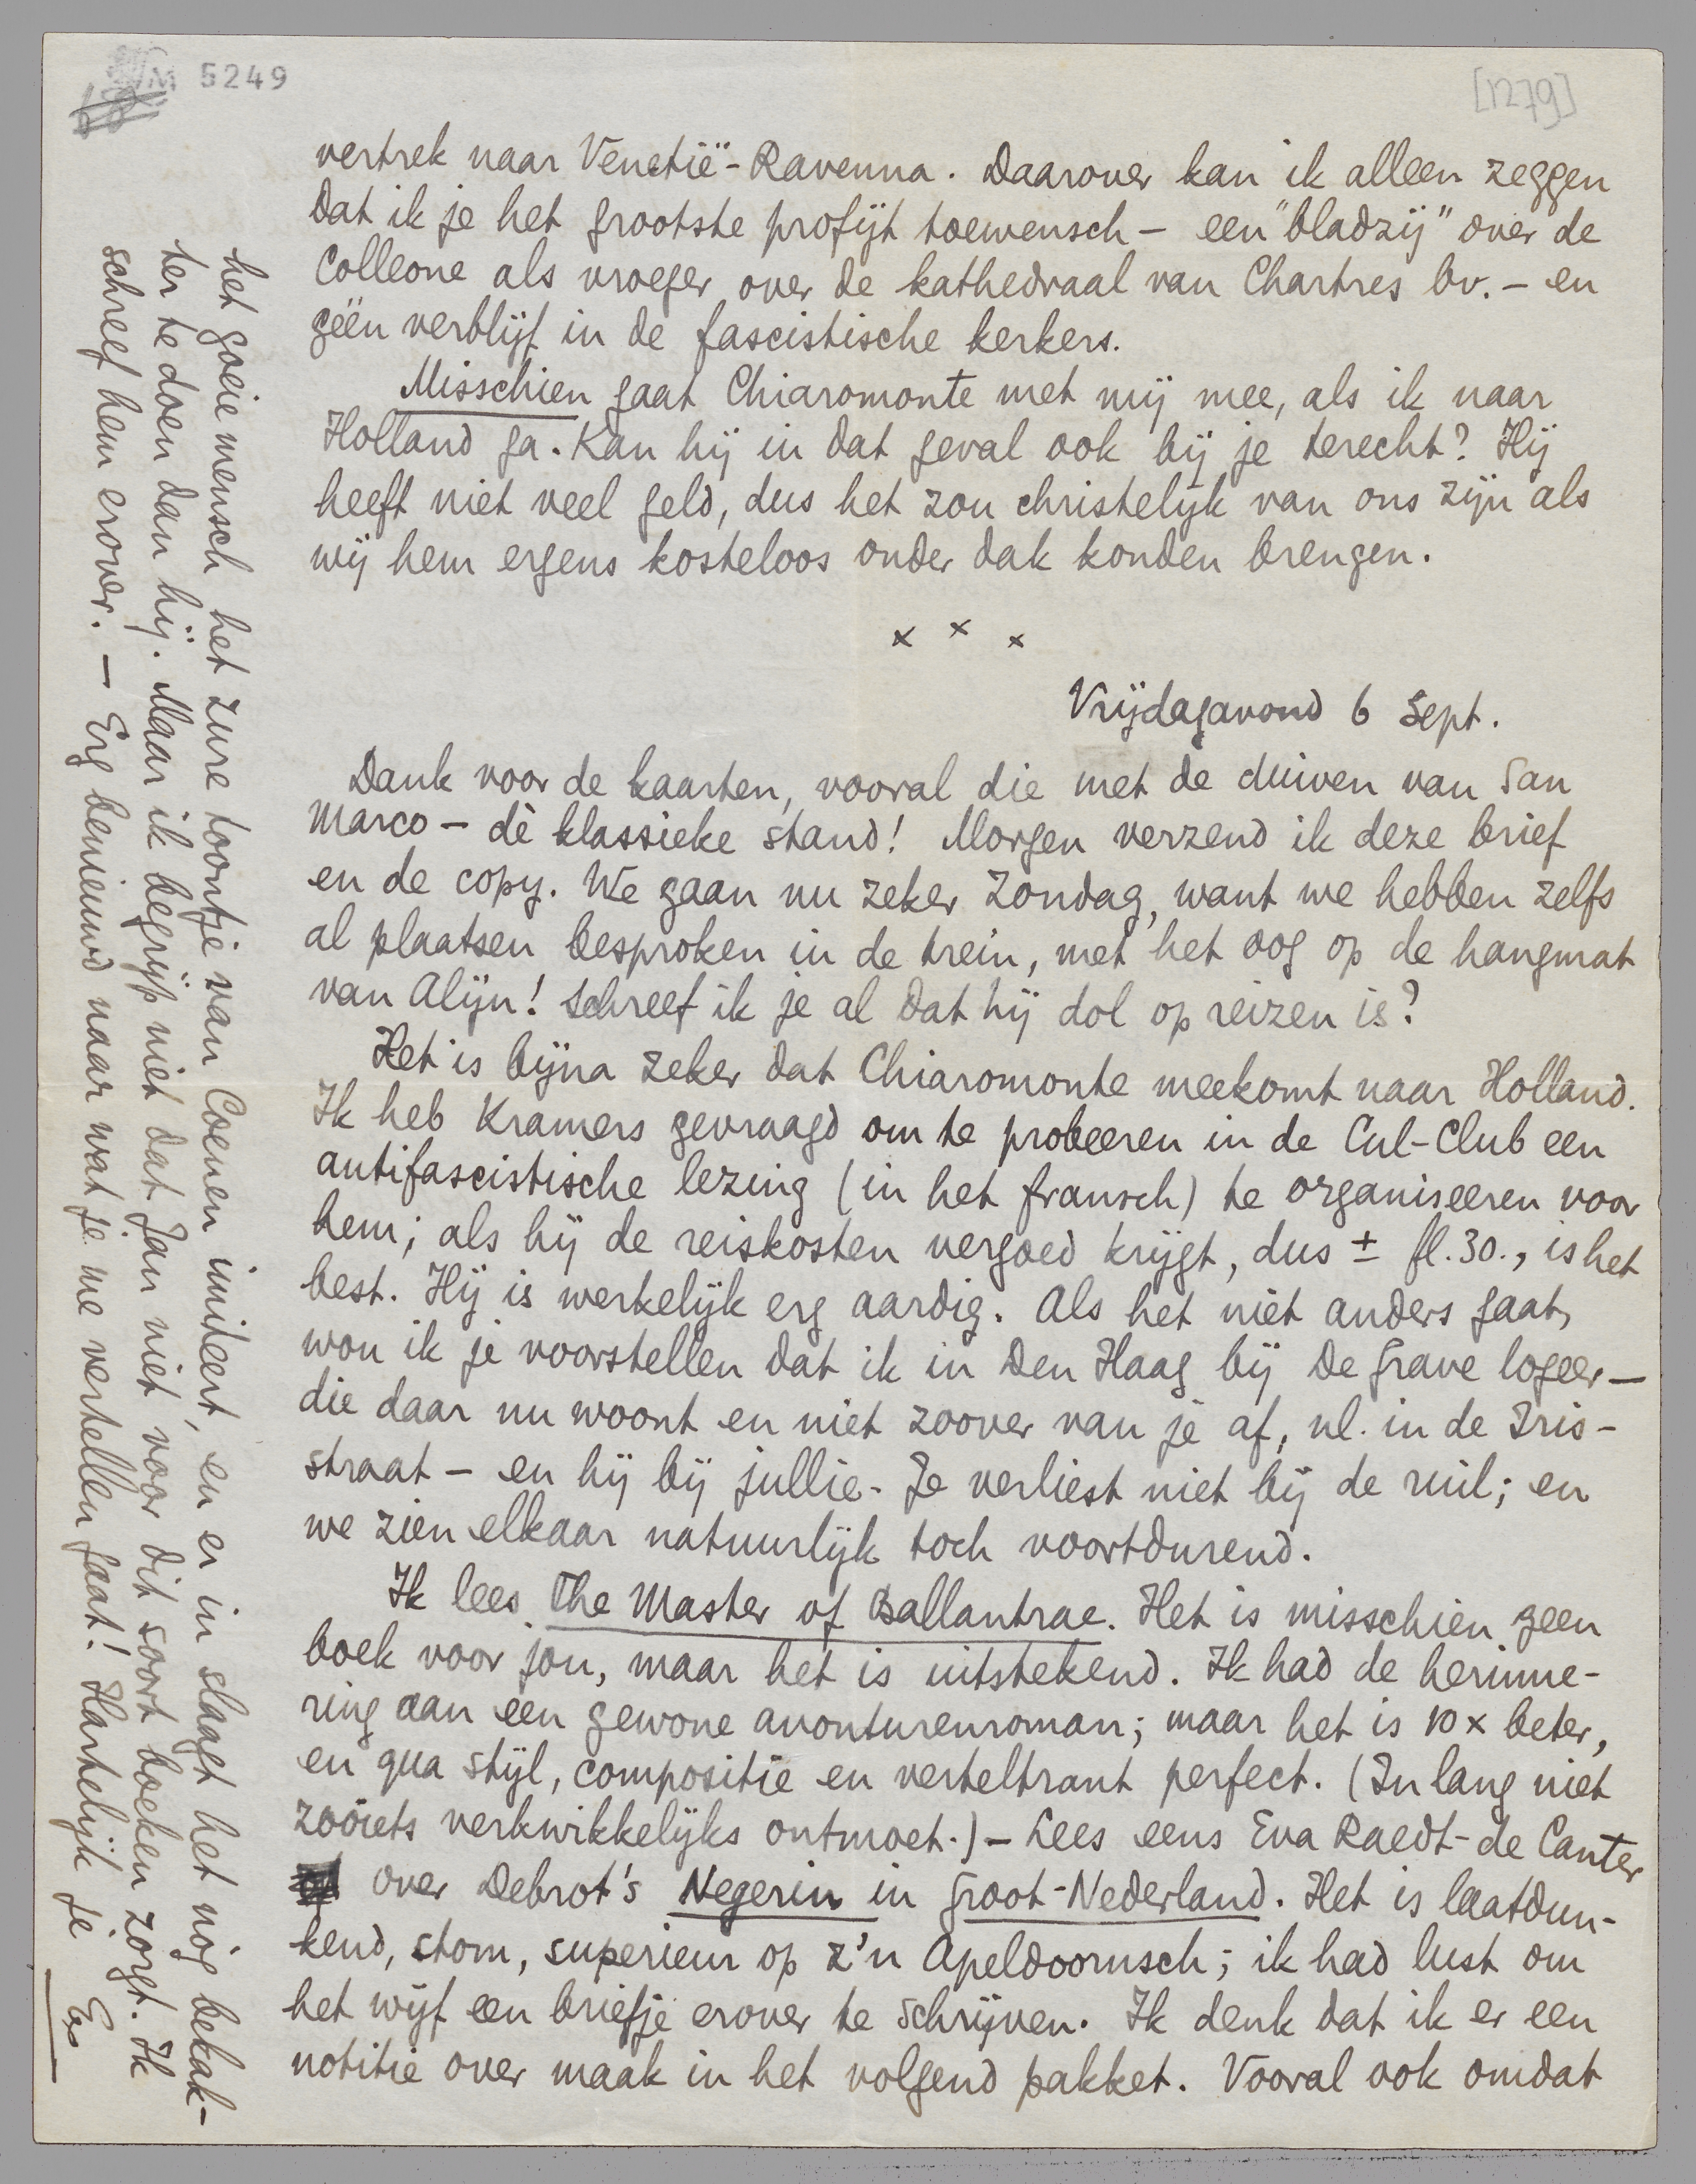 M 5249
[1279]
vertrek naar Venetië-Ravenna. Daarover kan ik alleen zeggen
dat ik je het grootste profijt toewensch – een "bladzij" over de
Colleone als vroeger over de kathedraal van Chartres bv. – en
géén verblijf in de fascistische kerkers.
Misschien gaat Chiaromonte met mij mee, als ik naar
Holland ga. Kan hij in dat geval ook bij je terecht? Hij
heeft niet veel geld, dus het zou christelijk van ons zijn als
wij hem ergens kosteloos onder dak konden brengen.
x x x
Vrijdagavond 6 Sept.
Dank voor de kaarten, vooral die met de duiven van San
Marco – dè klassieke stand! Morgen verzend ik deze brief
en de copy. We gaan nu zeker Zondag, want we hebben zelfs
al plaatsen besproken in de trein, met het oog op de hangmat
van Alijn! Schreef ik je al dat hij dol op reizen is?
Het is bijna zeker dat Chiaromonte meekomt naar Holland.
Ik heb Kramers gevraagd om te probeeren in de Cul-Club een
antifascistische lezing (in het fransch) te organiseeren voor
hem; als hij de reiskosten vergoed krijgt, dus ± fl. 30., is het
best. Hij is werkelijk erg aardig. Als het niet anders gaat,
wou ik je voorstellen dat ik in Den Haag bij De Grave logeer –
die daar nu woont en niet zoover van je af, nl. in de Iris-
straat – en hij bij jullie. Je verliest niet bij de ruil; en
we zien elkaar natuurlijk toch voortdurend.
Ik lees The Master of Ballantrae. Het is misschien geen
boek voor jou, maar het is uitstekend. Ik had de herinne-
ring aan een gewone avonturenroman; maar het is 10 x beter,
en qua stijl, compositie en verteltrant perfect. (In lang niet
zóóiets verkwikkelijks ontmoet.) – Lees eens Eva Raedt-de Canter
over Debrot's Negerin in Groot-Nederland. Het is laatdun-
kend, stom, superieur op z'n Apeldoornsch; ik had lust om
het wijf een briefje erover te schrijven. Ik denk dat ik er een
notitie over maak in het volgend pakket. Vooral ook omdat
het goeie mensch het zure toontje van Coenen imiteert, en er in slaagt het nòg bekak-
ter te doen dan hij. Maar ik begrijp niet dat Jan niet voor dit soort boeken zorgt. Ik
schreef hem erover. – Erg benieuwd naar wat je me vertellen gaat! Hartelijk je
E.